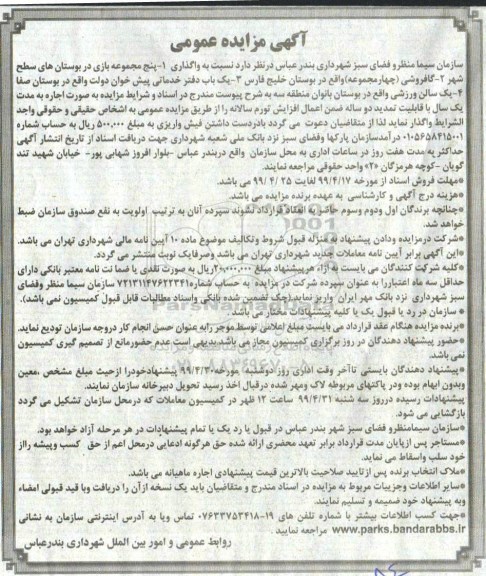 آگهی مزایده عمومی
سازمان سیما منظر و فضای سبز شهرداری بندر عباس درنظر دارد نسبت به واگذاری ۱-پنج مجموعه بازی در بوستان های سطح
شهر ۲-گافروشی (چهارمجموعه)واقع در بوستان خلیج فارس ۳-یک باب دفتر خدماتی پیش خوان دولت واقع در بوستان صفا
۴-یک سالن ورزشی واقع در بوستان بانوان منطقه سه به شرح پیوست مندرج در اسناد و شرایط مزایده به صورت اجاره به مدت
یک سال با قابلیت تمدید دو ساله ضمن اعمال افزایش تورم سالانه را از طریق مزایده عمومی به اشخاص حقیقی و حقوقی واجد
الشرایط واگذار نماید لذا از متقاضیان دعوت می گردد بادردست داشتن فیش واریزی به مبلغ ۵۰۰٫۰۰۰ ریال به حساب شماره
۰۱۰۵۶۵۸۴۱۵۰۰۱ درآمدسازمان پارکها وفضای سبز نزد بانک ملی شعبه شهرداری جهت دریافت اسناد از تاریخ انتشار آگهی
حداکثر به مدت هفت روز در ساعات اداری به محل سازمان واقع دربندر عباس -بلوار افروز شهابی پور- خیابان شهید تند
گویان -کوچه هرمزگان «۲» واحد حقوقی مراجعه نمایند.
*مهلت فروش اسناد از مورخه ۹۹/۴/۱۷ لغایت ۲۵ /۴ /۹۹ می باشد.
*هزینه درج آگهی و کارشناسی به عهده برنده مزایده می باشد.
*چنانچه برندگان اول ودوم وسوم حاضر به انعقاد قرارداد نشوند سپرده آنان به ترتیب اولویت به نفع صندوق سازمان ضبط
خواهد شد.
*شرکت درمزایده ودادن پیشنهاد به منزله قبول شروط وتکالیف موضوع ماده ۱۰ آیین نامه مالی شهرداری تهران می باشد.
*این آگهی برابر آیین نامه معاملات جدید شهرداری تهران می باشد وصرفایک نوبت منتشر می گردد.
*کلیه شرکت کنندگان می بایست به ازاء هرپیشنهاد مبلغ ریال به صورت نقدی یا ضمانت نامه معتبر بانکی دارای
حداقل سه ماه اعتباررا به عنوان سپرده شرکت در مزایده به حساب شماره سازمان سیما منظر وفضای
سبز شهرداری نزد بانک مهر ایران واریز نماید.(چک تضمین شده بانکی واسناد مطالبات قابل قبول کمیسیون نمی باشد).
* سازمان در رد یا قبول یک یا کلیه پیشنهادات مختار می باشد
*برنده مزایده هنگام عقد قرارداد می بایست مبلغ اعلامی توسط موجر رابه عنوان حسن انجام کار دروجه سازمان تودیع نماید.
*حضور پیشنهاد دهندگان در روز برگزاری کمیسیون مجاز می باشد.بدیهی است عدم حضورمانع از تصمیم گیری کمیسیون
نمی باشد.
*پیشنهاد دهندگان بایستی تاآخر وقت اداری روز دوشنبه مورخه۹۹/۴/۳۰ پیشنهادخودرا ازحیث مبلغ مشخص ،معین
وبدون ابهام بوده ودر پاکتهای مربوطه لاک ومهر شده درقبال اخذ رسید تحویل دبیرخانه سازمان نمایند.
پیشنهادات رسیده درروز سه شنبه ۹۹/۴/۳۱ ساعت ۱۲ ظهر در کمیسیون معاملات که درمحل سازمان تشکیل می گردد
بازگشایی می شود.
*سازمان سیمامنظرو فضای سبز شهر بندر عباس در قبول یا رد یک یا تمام پیشنهادات در هر مرحله آزاد خواهد بود.
*مستاجر پس ازپایان مدت قرارداد برابر تعهد محضری ارائه شده حق هرگونه ادعایی درمحل اعم از حق کسب وپیشه راز
خود سلب واسقاط می نماید.
*ملاک انتخاب برنده پس ازتایید صلاحیت بالاترین قیمت پیشنهادی اجاره ماهیانه می باشد.
*سایر اطلاعات وجزییات مربوط به مزایده در اسناد مندرج و متقاضیان باید یک نسخه ازآن را دریافت وبا قید قبولی امضاء
وبه پیشنهاد خود ضمیمه و تسلیم نمایند.
*جهت کسب اطلاعات بیشتر با شماره تلفن های ۱۹-۰۷۶۳۳۷۵۳۴۱۸ تماس ویا به آدرس اینترنتی سازمان به نشانی
www.parks.bandarabbs.ir مراجعه نمایید .
روابط عمومی و امور بین الملل شهرداری بندرعباس